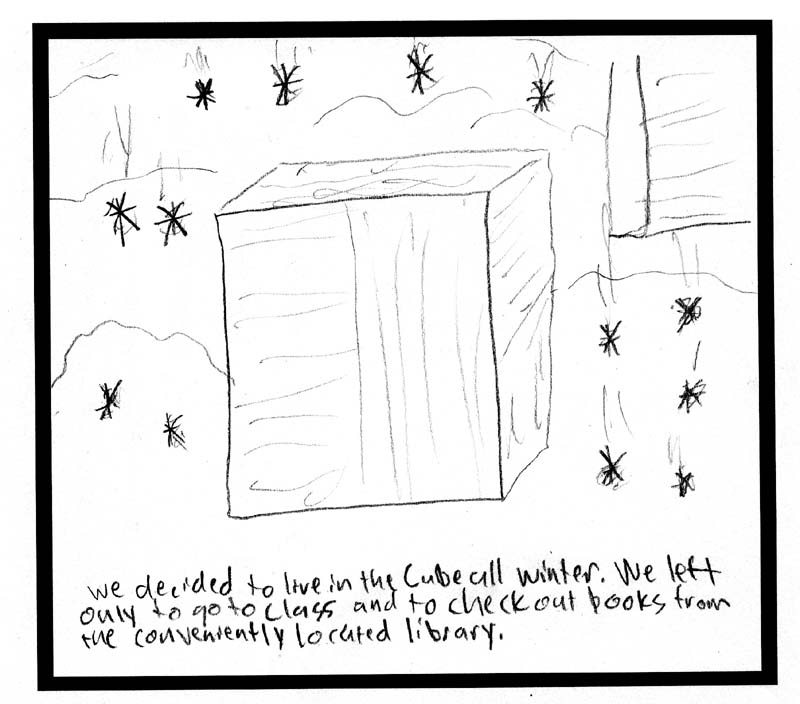 we decided to live in the Cube all winter. We left
only to go to class and to check out books from
the conveniently located library.